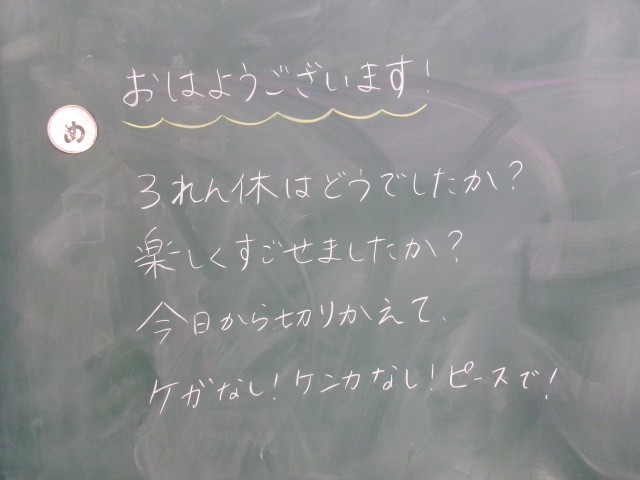 おはようございます!
め
3れん休はどうでしたか?
楽しくすごせましたか?
今日から切りかえて、
ケガなし!ケンカなし!ピースで!